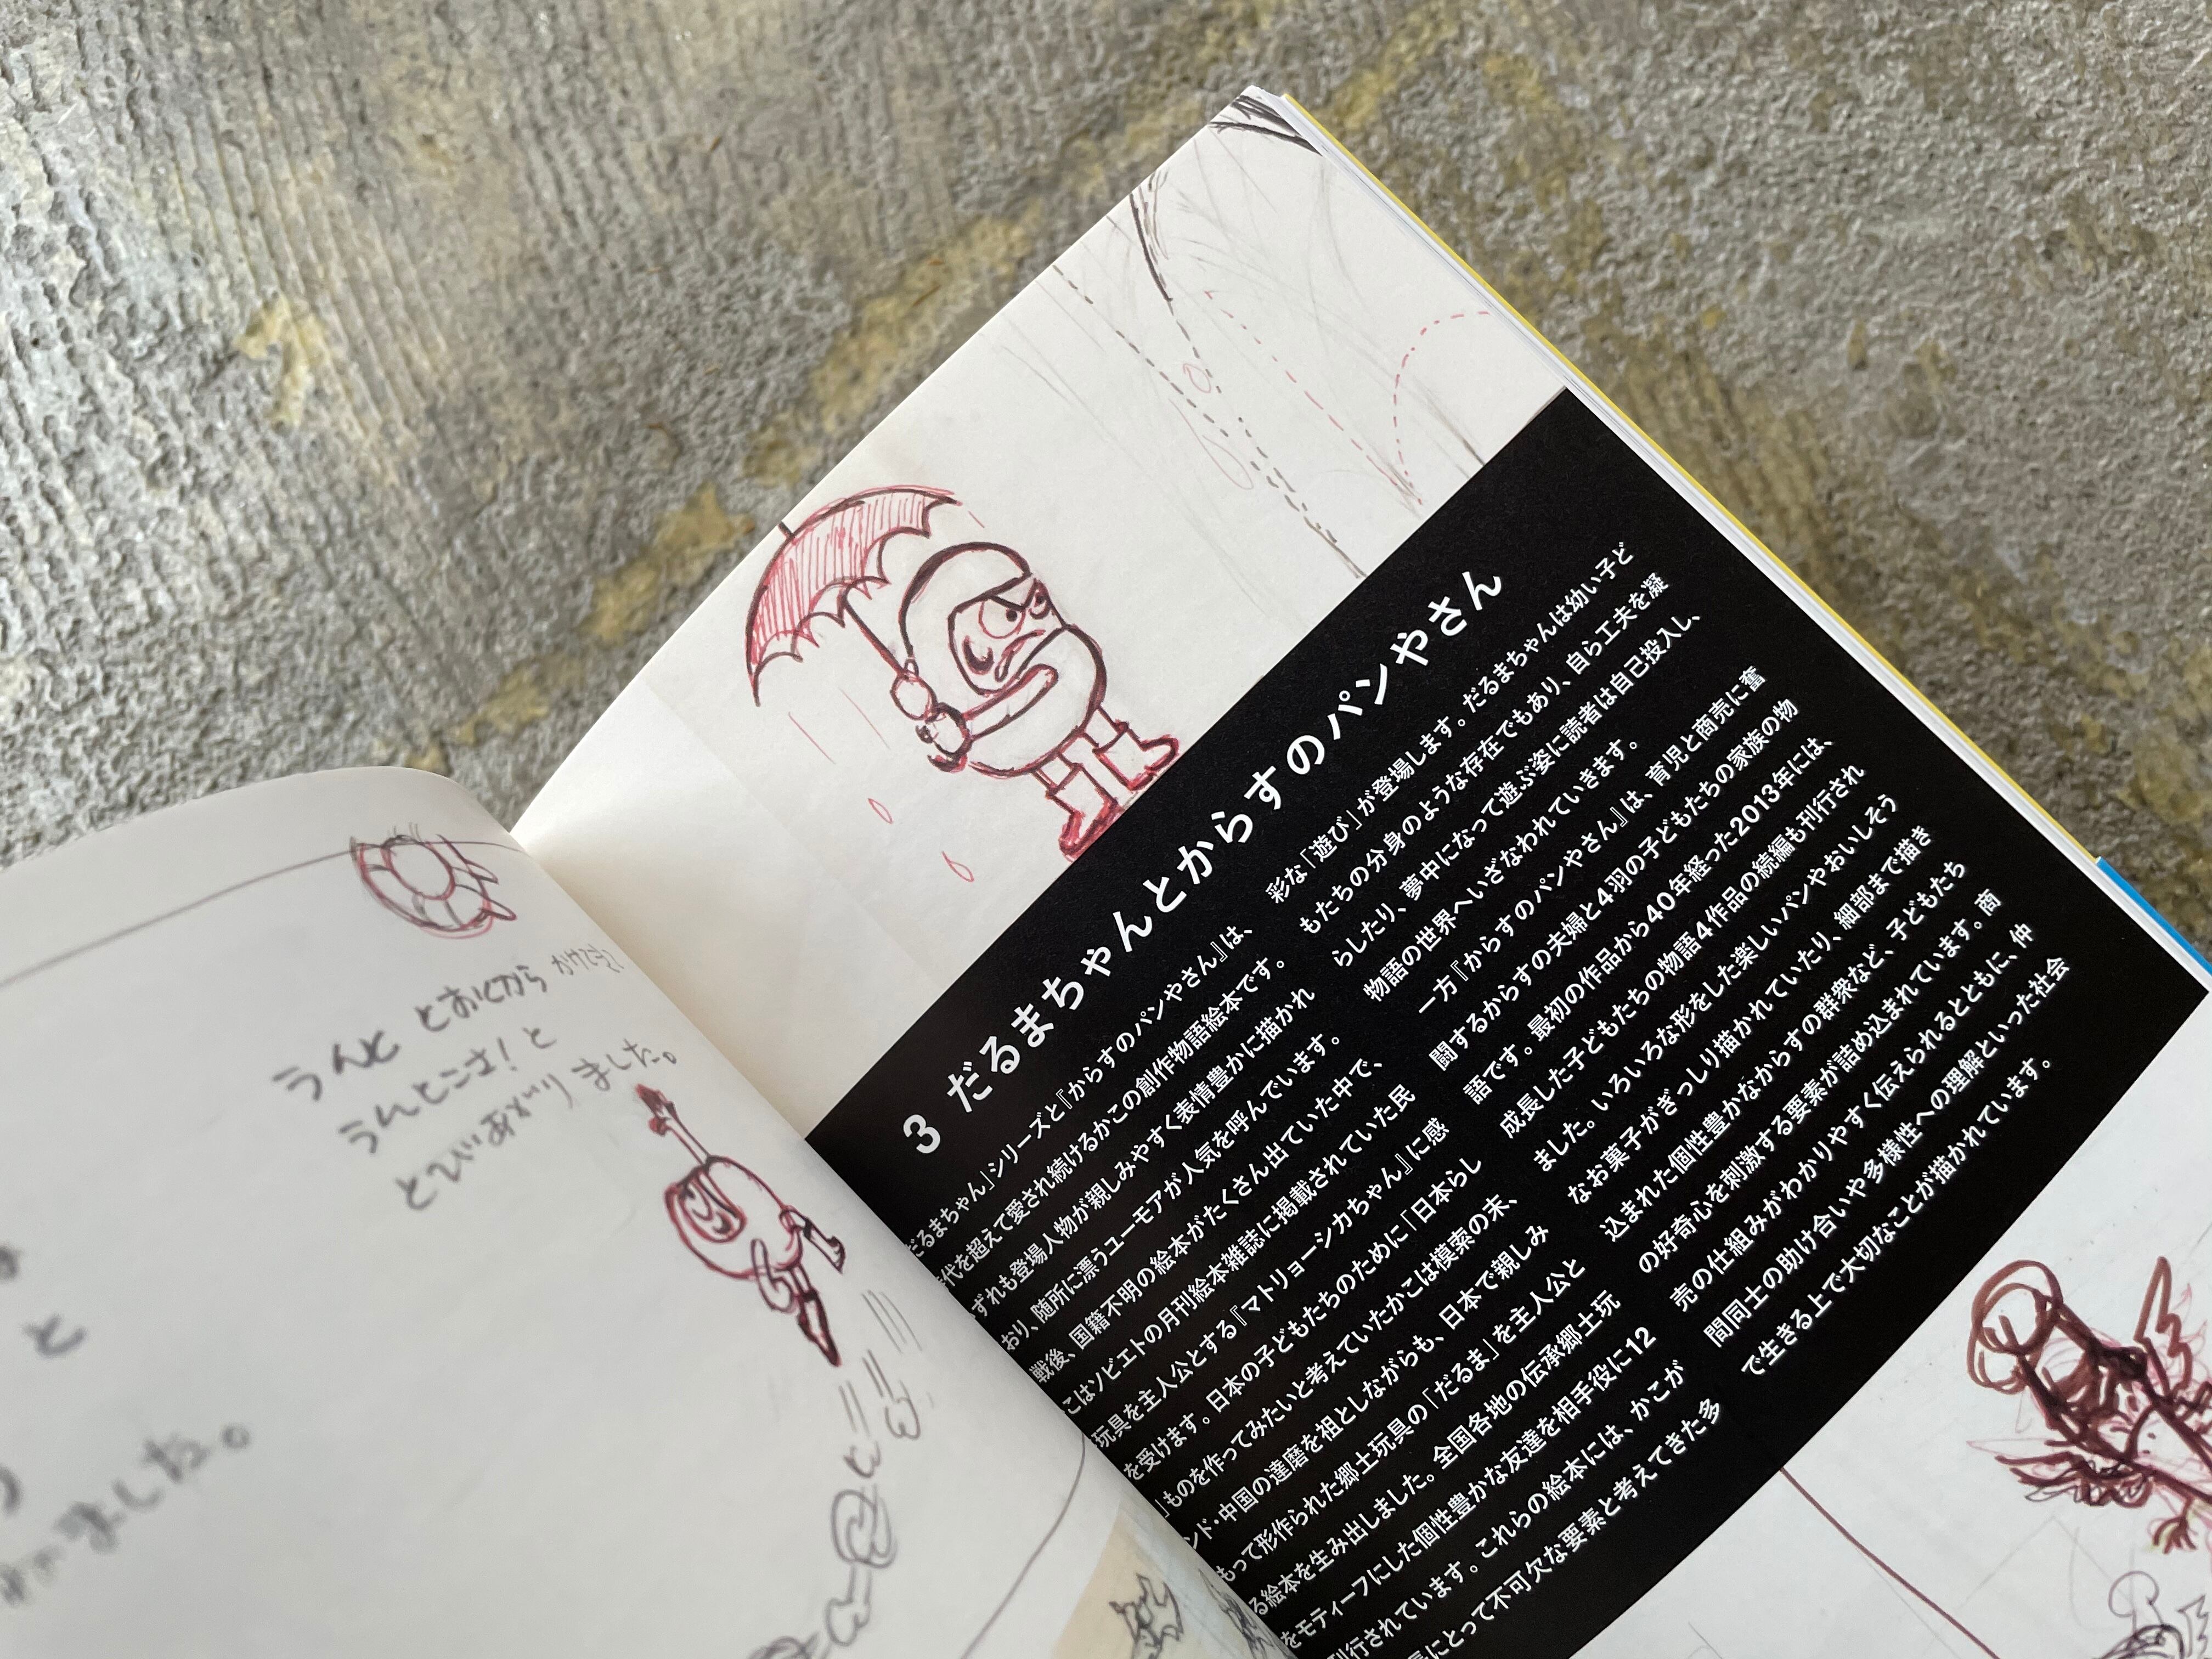 うんと とおくから かけてきて
うんとこさ！と
とびあがり ました。
と
ました。
3 だるまちゃんとからすのパンやさん
だるまちゃん」シリーズと『からすのパンやさん』は、
代を超えて愛され続けるかこの創作物語絵本です。
ずれも登場人物が親しみやすく表情豊かに描かれ
おり、随所に漂うユーモアが人気を呼んでいます。
戦後、国籍不明の絵本がたくさん出ていた中で、
こはソビエトの月刊絵本雑誌に掲載されていた民
玩具を主人公とする『マトリョーシカちゃん』に感
を受けます。日本の子どもたちのために「日本らし
」ものを作ってみたいと考えていたかこは模索の末、
ンド・中国の達磨を祖としながらも、日本で親しみ
もって形作られた郷土玩具の「だるま」を主人公と
る絵本を生み出しました。全国各地の伝承郷土玩
をモティーフにした個性豊かな友達を相手役に12
刊行されています。これらの絵本には、かこが
長にとって不可欠な要素と考えてきた多
彩な「遊び」が登場します。だるまちゃんは幼い子ど
もたちの分身のような存在でもあり、自ら工夫を凝
らしたり、夢中になって遊ぶ姿に読者は自己投入し、
物語の世界へいざなわれていきます。
一方『からすのパンやさん』は、育児と商売に奮
闘するからすの夫婦と4羽の子どもたちの家族の物
語です。最初の作品から40年経った2013年には、
成長した子どもたちの物語4作品の続編も刊行され
ました。いろいろな形をした楽しいパンやおいしそう
なお菓子がぎっしり描かれていたり、細部まで描き
込まれた個性豊かなからすの群衆など、子どもたち
の好奇心を刺激する要素が詰め込まれています。商
売の仕組みがわかりやすく伝えられるとともに、仲
間同士の助け合いや多様性への理解といった社会
で生きる上で大切なことが描かれています。